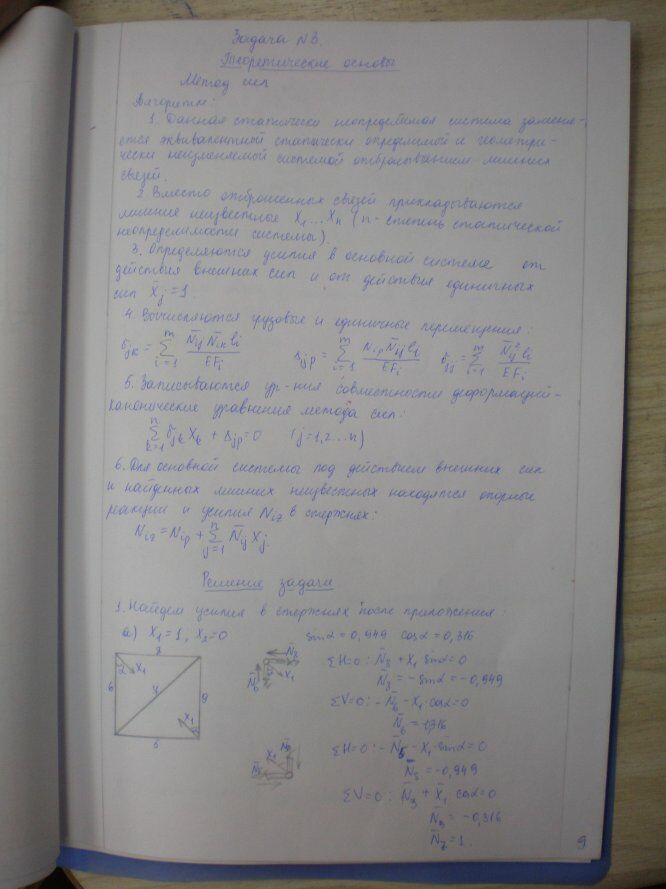 Задача N3.
Теоретические основы
Метод сил
Алгоритм:
1. Данная статически неопределимая система заменя-
ется эквивалентной статически определимой и геометри-
чески неизменяемой системой отбрасыванием лишних
связей.
2. Вместо отброшенных связей прикладываются
лишние неизвестные X₁...Xn (n - степень статической
неопределимости системы).
3. Определяются усилия в основной системе от
действия внешних сил и от действия единичных
сил X̄j=1.
4. Вычисляются грузовые и единичные перемещения:
δjk = Σ(i=1..m) N̄ij N̄ik li / EFi  Δjp = Σ(i=1..m) Nip N̄ij li / EFi  δjj = Σ(i=1..m) N̄ij² li / EFi
5. Записываются ур-ния совместности деформаций-
канонические уравнения метода сил:
Σ(k=1..n) δjk Xk + Δjp = 0 (j=1,2...n)
6. Для основной системы под действием внешних сил
и найденных лишних неизвестных находятся опорные
реакции и усилия Niz в стержнях:
Niz = Nip + Σ(j=1..n) N̄ij Xj.
Решение задачи
1. Найдем усилия в стержнях после приложения:
а) X₁=1, X₂=0
sinα = 0,949 cosα = 0,316
ΣH=0: N̄8 + X₁ sinα = 0
N̄8 = -sinα = -0,949
ΣV=0: -N̄6 - X₁·cosα = 0
ΣH=0: -N̄5 - X₁·sinα = 0
N̄5 = -0,949
ΣV=0: N̄9 + X̄₁·cosα = 0
N̄9 = -0,316
N̄7 = 1.
8
6
α
X₁
7
9
X₁
5
9